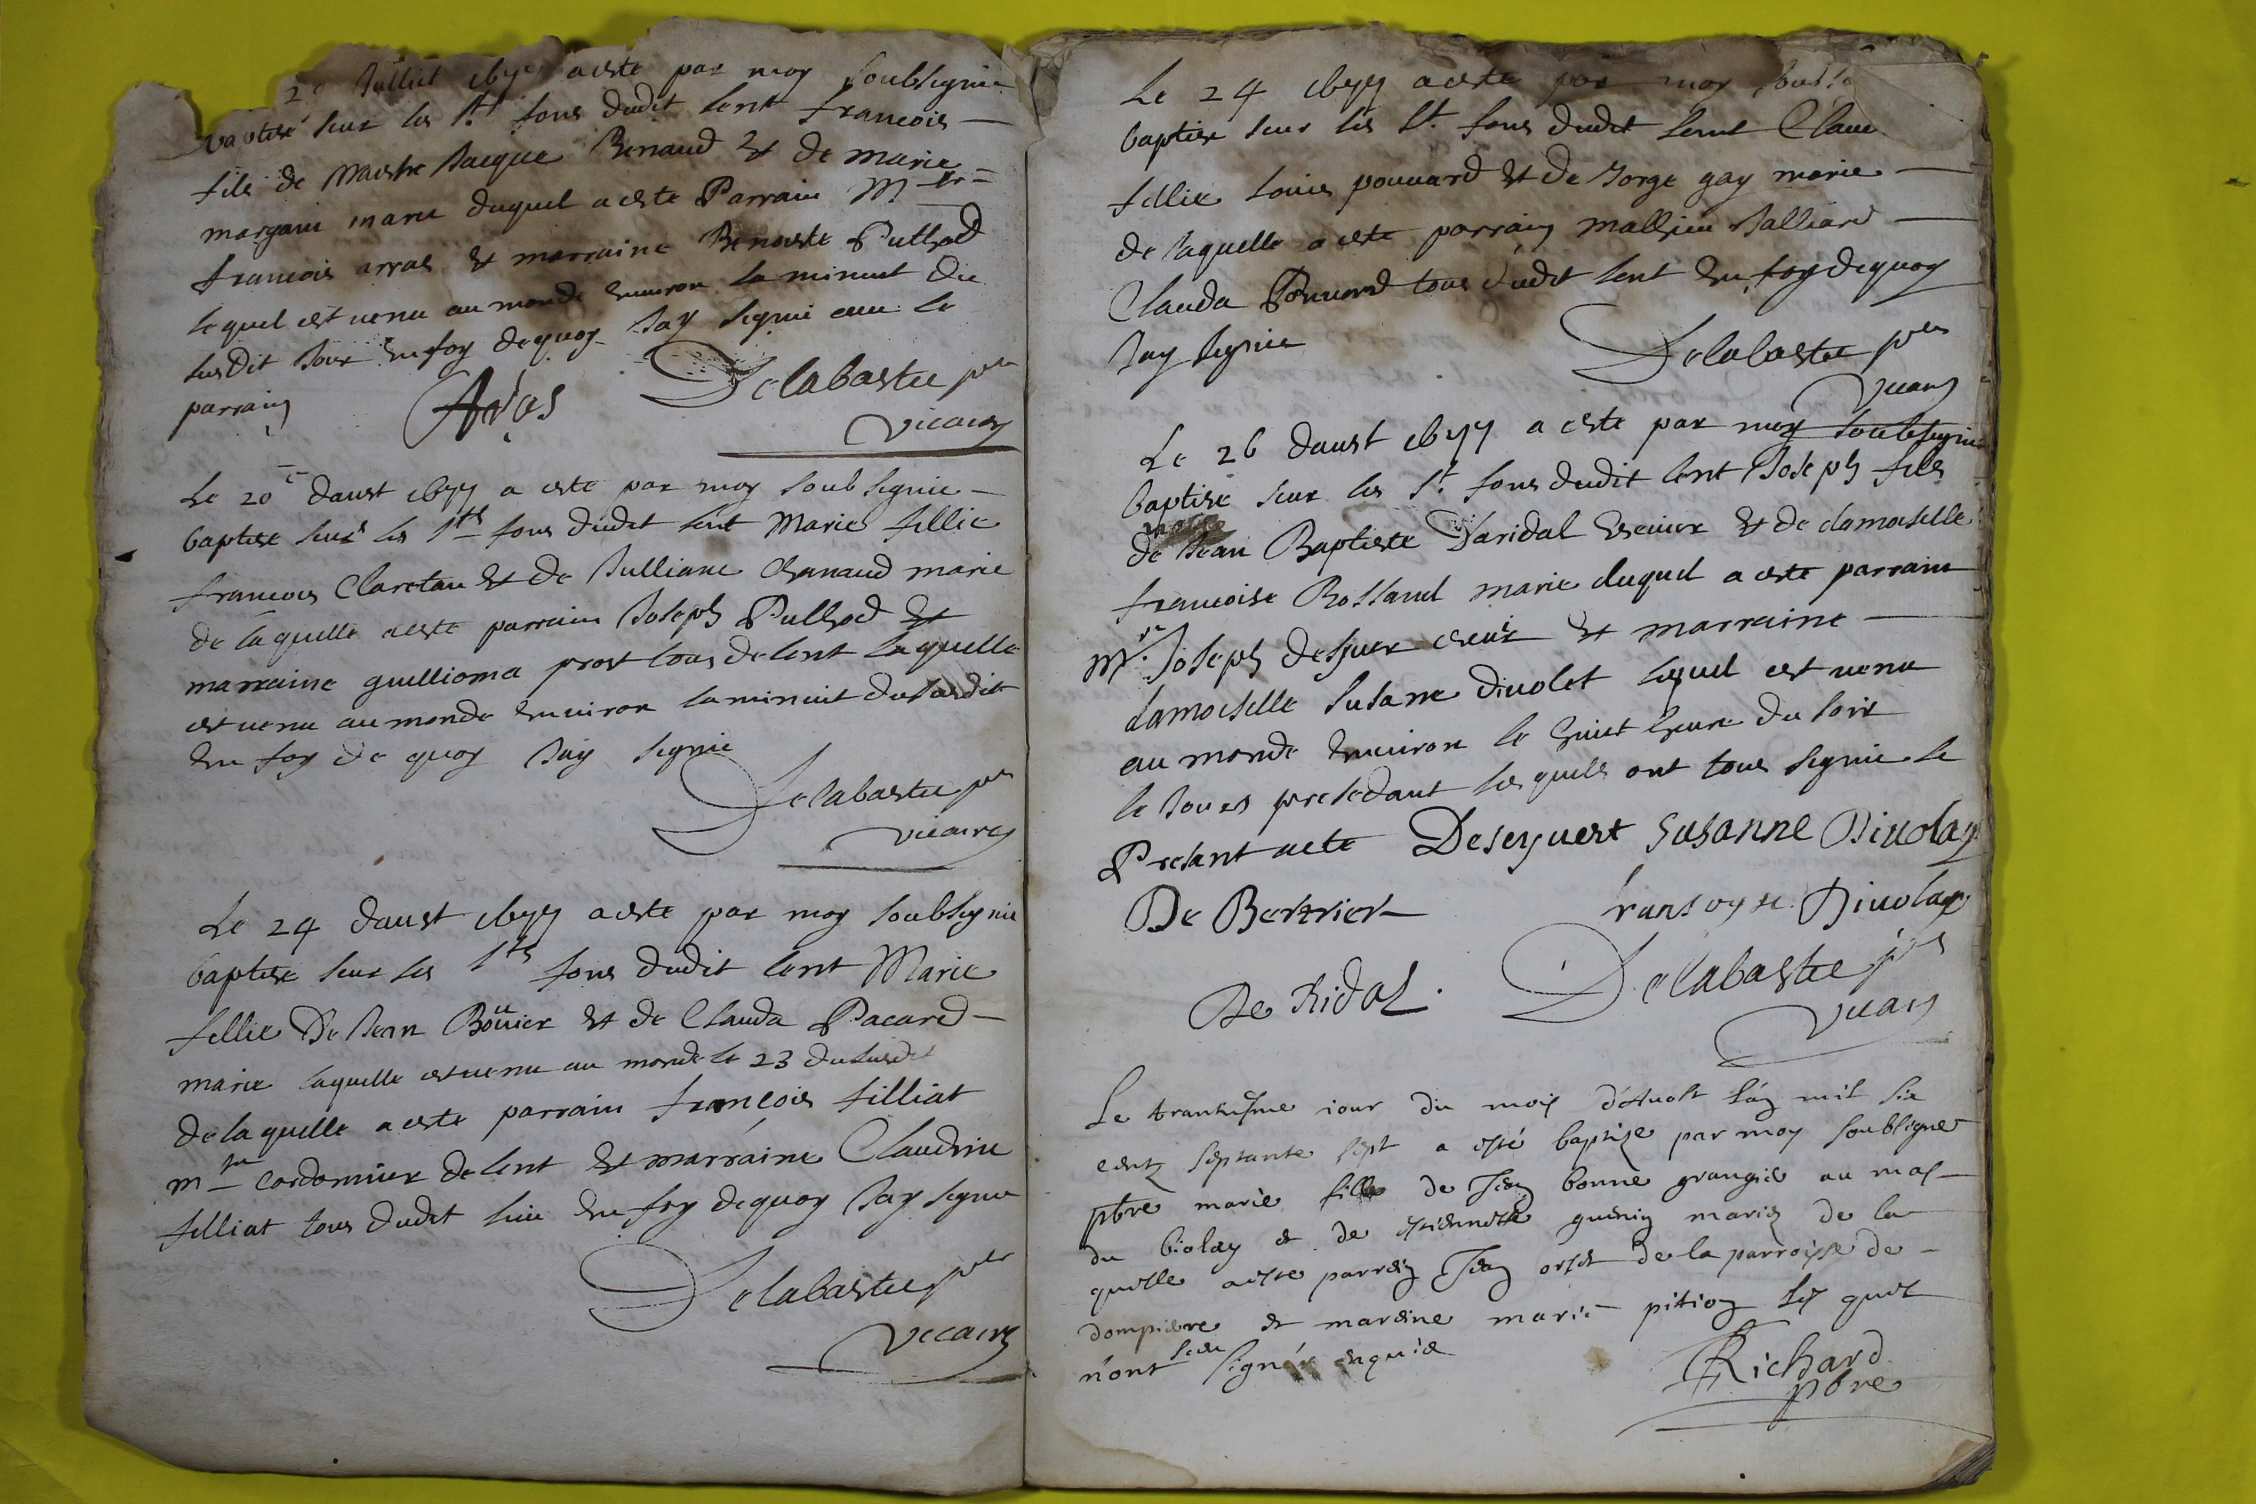 Juilliet a este par moy soubsignie
baptise sur les Sts fons dudit lent francois
fils de Maistre Jacque Renaud Et de marie
margain marie duquel a este Parrain Mtre
francois arras Et marraine Benoiste Puthod
lequel est venu au monde environ la minuit du
susdit Jour En foy dequoy Jay signie avec le
parrain Aras Delabastie ptre
vicaire
Le 20e daust 1677 a este par moy soubsignie
baptise sur les Sts fons dudit lent Marie fillie
francois Claretan Et de Julliane Chanaud marie
de laquelle a este parrain Joseph Puthod Et
marraine guilliema prost tous de lent laquelle
est venu au monde environ la minuit du susdit
En foy de quoy Jay signie
Delabastie ptre
vicaire
Le 24 daust 1677 a este par moy soubsignie
baptise sur les Sts fons dudit lent Marie
fillie De Jean Boüvier Et de Clauda Pacard
marie laquelle est venu au monde le 23 du susdit
de laquelle a este parrain françois filliat
mtre cordonnier de lent Et marraine Claudine
filliat tous dudit lieu En foy dequoy Jay signie
Delabastie ptre
vicaire
Le 24 1677 a este par moy
baptise sur les St fons dudit lent
fillie Louis pouuard Et de gay marie
de laquelle a este parrain
Clauda Pouuard tous dudit lent En foy dequoy
Jay signie Delabastie ptre
vicaire
Le 26 daust 1677 a este par moy soubsignie
baptise sur les St fons dudit lent Joseph fils
de Jean Baptiste Daridal Escuier Et de damoiselle
francoise Rossand marie duquel a este parrain
Mre Joseph Et marraine
damoiselle Susane divolet lequel est venu
au monde environ le huict heure du soir
le Jours presedant lesquels ont tous signie le
Presant acte Deseyvert Susanne Divolay
De Bertrier fransoyse Divolay
De Ridal Delabastie ptre
vicaire
Le trantiesme iour du mois d'Auost l'an mil six
centz septante sept a esté baptize par moy soubsigné
pbre marie fille de Jean bonne grangié au mas
du biolay et de estiennette guenin mariez de la
quelle a este parrein Jean de la parroisse de
dompierre et mareine marie pition lesquels
n'ont sceu signér enquis
Richard
pbre